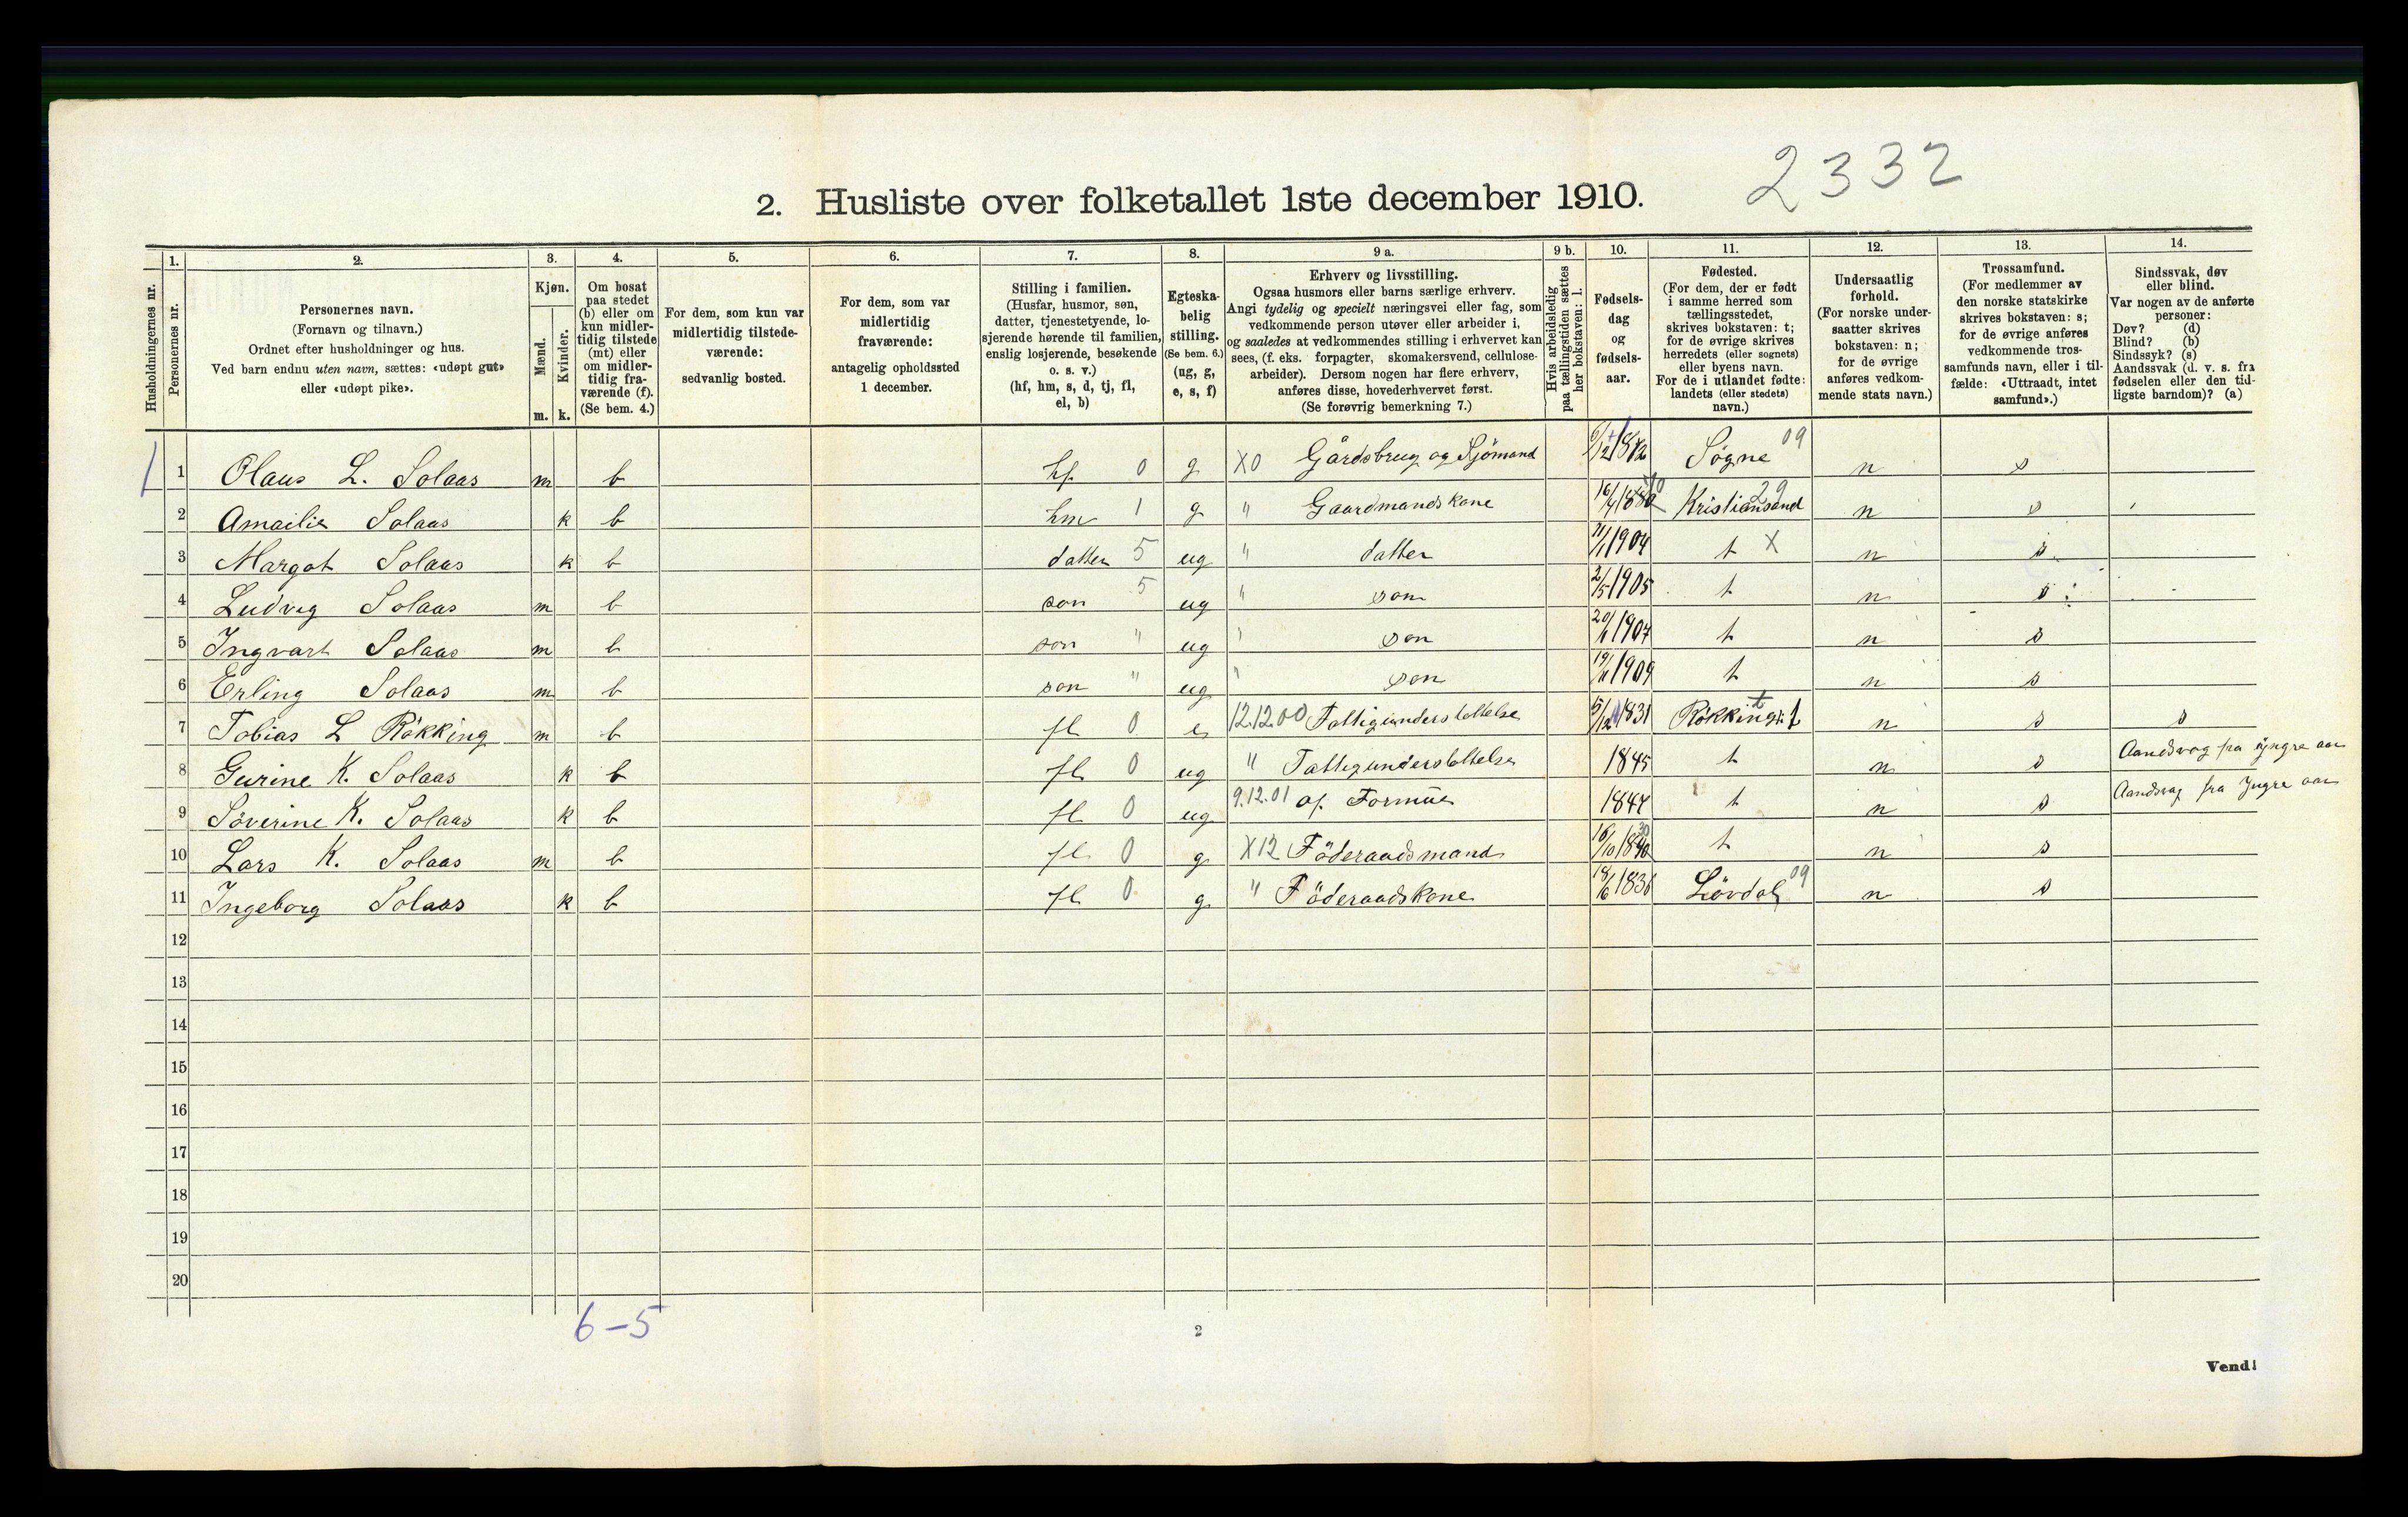 2332
2. Husliste over folketallet 1ste december 1910.
1. 2. 3. 4. 5. 6. 7. 8. 9 a. 9 b. 10. 11. 12. 13. 14.
Husholdningernes nr.
Personernes nr.
Personernes navn.
(Fornavn og tilnavn.)
Ordnet efter husholdninger og hus.
Ved barn endnu uten navn, sættes: «udøpt gut»
eller «udøpt pike».
Kjøn.
Mænd.
Kvinder.
m. k.
Om bosat
paa stedet
(b) eller om
kun midler-
tidig tilstede
(mt) eller
om midler-
tidig fra-
værende (f).
(Se bem. 4.)
For dem, som kun var
midlertidig tilstede-
værende:
sedvanlig bosted.
For dem, som var
midlertidig
fraværende:
antagelig opholdssted
1 december.
Stilling i familien.
(Husfar, husmor, søn,
datter, tjenestetyende, lo-
sjerende hørende til familien,
enslig losjerende, besøkende
o. s. v.)
(hf, hm, s, d, tj, fl,
el, b)
Egteska-
belig
stilling.
(Se bem. 6.)
(ug, g,
e, s, f)
Erhverv og livsstilling.
Ogsaa husmors eller barns særlige erhverv.
Angi tydelig og specielt næringsvei eller fag, som
vedkommende person utøver eller arbeider i,
og saaledes at vedkommendes stilling i erhvervet kan
sees, (f. eks. forpagter, skomakersvend, cellulose-
arbeider). Dersom nogen har flere erhverv,
anføres disse, hovederhvervet først.
(Se forøvrig bemerkning 7.)
Hvis arbeidsledig
paa tællingstiden sættes
her bokstaven: l.
Fødsels-
dag
og
fødsels-
aar.
Fødested.
(For dem, der er født
i samme herred som
tællingsstedet,
skrives bokstaven: t;
for de øvrige skrives
herredets (eller sognets)
eller byens navn.
For de i utlandet fødte:
landets (eller stedets)
navn.)
Undersaatlig
forhold.
(For norske under-
saatter skrives
bokstaven: n;
for de øvrige
anføres vedkom-
mende stats navn.)
Trossamfund.
(For medlemmer av
den norske statskirke
skrives bokstaven: s;
for de øvrige anføres
vedkommende tros-
samfunds navn, eller i til-
fælde: «Uttraadt, intet
samfund».)
Sindssvak, døv
eller blind.
Var nogen av de anførte
personer:
Døv? (d)
Blind? (b)
Sindssyk? (s)
Aandssvak (d. v. s. fra
fødselen eller den tid-
ligste barndom)? (a)
1 1 Olaus L. Solaas m b hf 0 g X0 Gårdsbrug og Sjömand Søgne 09 n s
2 Amailie Solaas k b hm 1 g " Gaardmandskone Kristiansand 29 n s
3 Margot Solaas k b datter 5 ug " datter 1904 t X n s
4 Ludvig Solaas m b son 5 ug " son 2/5 1905 t n s
5 Ingvart Solaas m b son " ug " son 1907 t n s
6 Erling Solaas m b son " ug " son 1909 t n s
7 Tobias L Rökking m b fl 0 e 12.12.00 Fattigunderstøttelse 1831 t n s s
8 Gurine K. Solaas k b fl 0 ug " Fattigunderstøttelse 1845 t n s Aandsvag fra yngre aar
9 Söverine K. Solaas k b fl 0 ug 9.12.01 af Formue 1847 t n s Aandsvag fra yngre aar
10 Lars K. Solaas m b fl 0 g X12 Föderaadsmand t n s
11 Ingeborg Solaas k b fl 0 g " Föderaadskone 18/6 1836 Lövdal 09 n s
12
13
14
15
16
17
18
19
20
6-5
2
Vend!